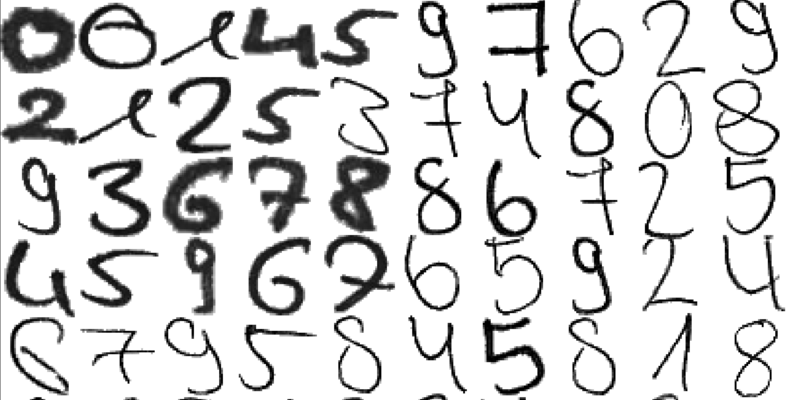 0 0 1 4 5 9 7 6 2 9
2 1 2 5 3 7 4 8 0 8
9 3 6 7 8 8 6 7 2 5
4 5 9 6 7 6 5 9 2 4
6 7 9 5 8 4 5 8 1 8